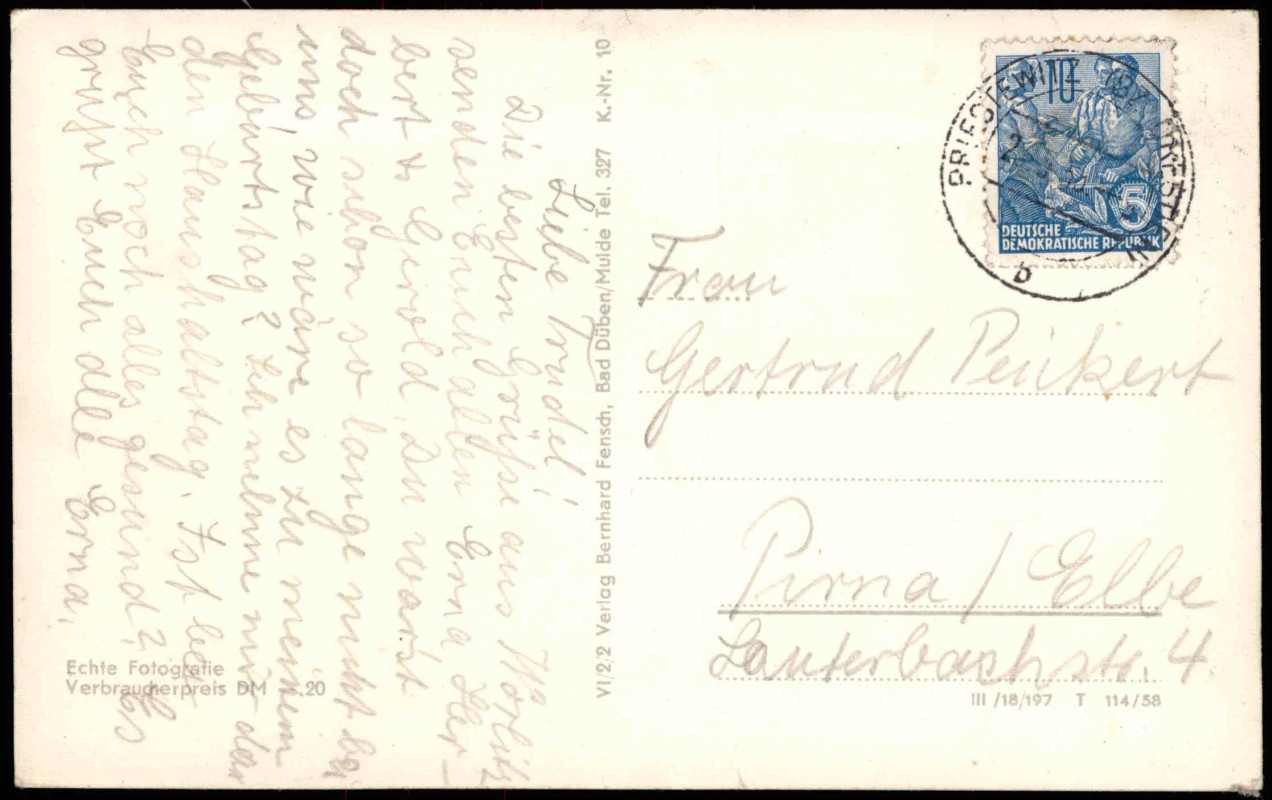 Liebe Trudel!
Die besten Grüße aus Wörlitz
senden Euch allen Erna Her-
bert & Gerold. Du warst
doch schon so lange nicht bei
uns, wie wäre es zu meinem
Geburtstag? Ich nehme mir da
den Haushaltstag. Ist bei
Euch noch alles gesund? Es
grüßt Euch alle Erna.
Echte Fotografie
Verbraucherpreis DM –.20
VI/2/2 Verlag Bernhard Fensch, Bad Düben/Mulde Tel. 327 K.-Nr. 10
10
5
DEUTSCHE
DEMOKRATISCHE REPUBLIK
PRIESTEWITZ
b
Frau
Gertrud Peikert
Pirna / Elbe
Lauterbachstr. 4.
III /18/197 T 114/58